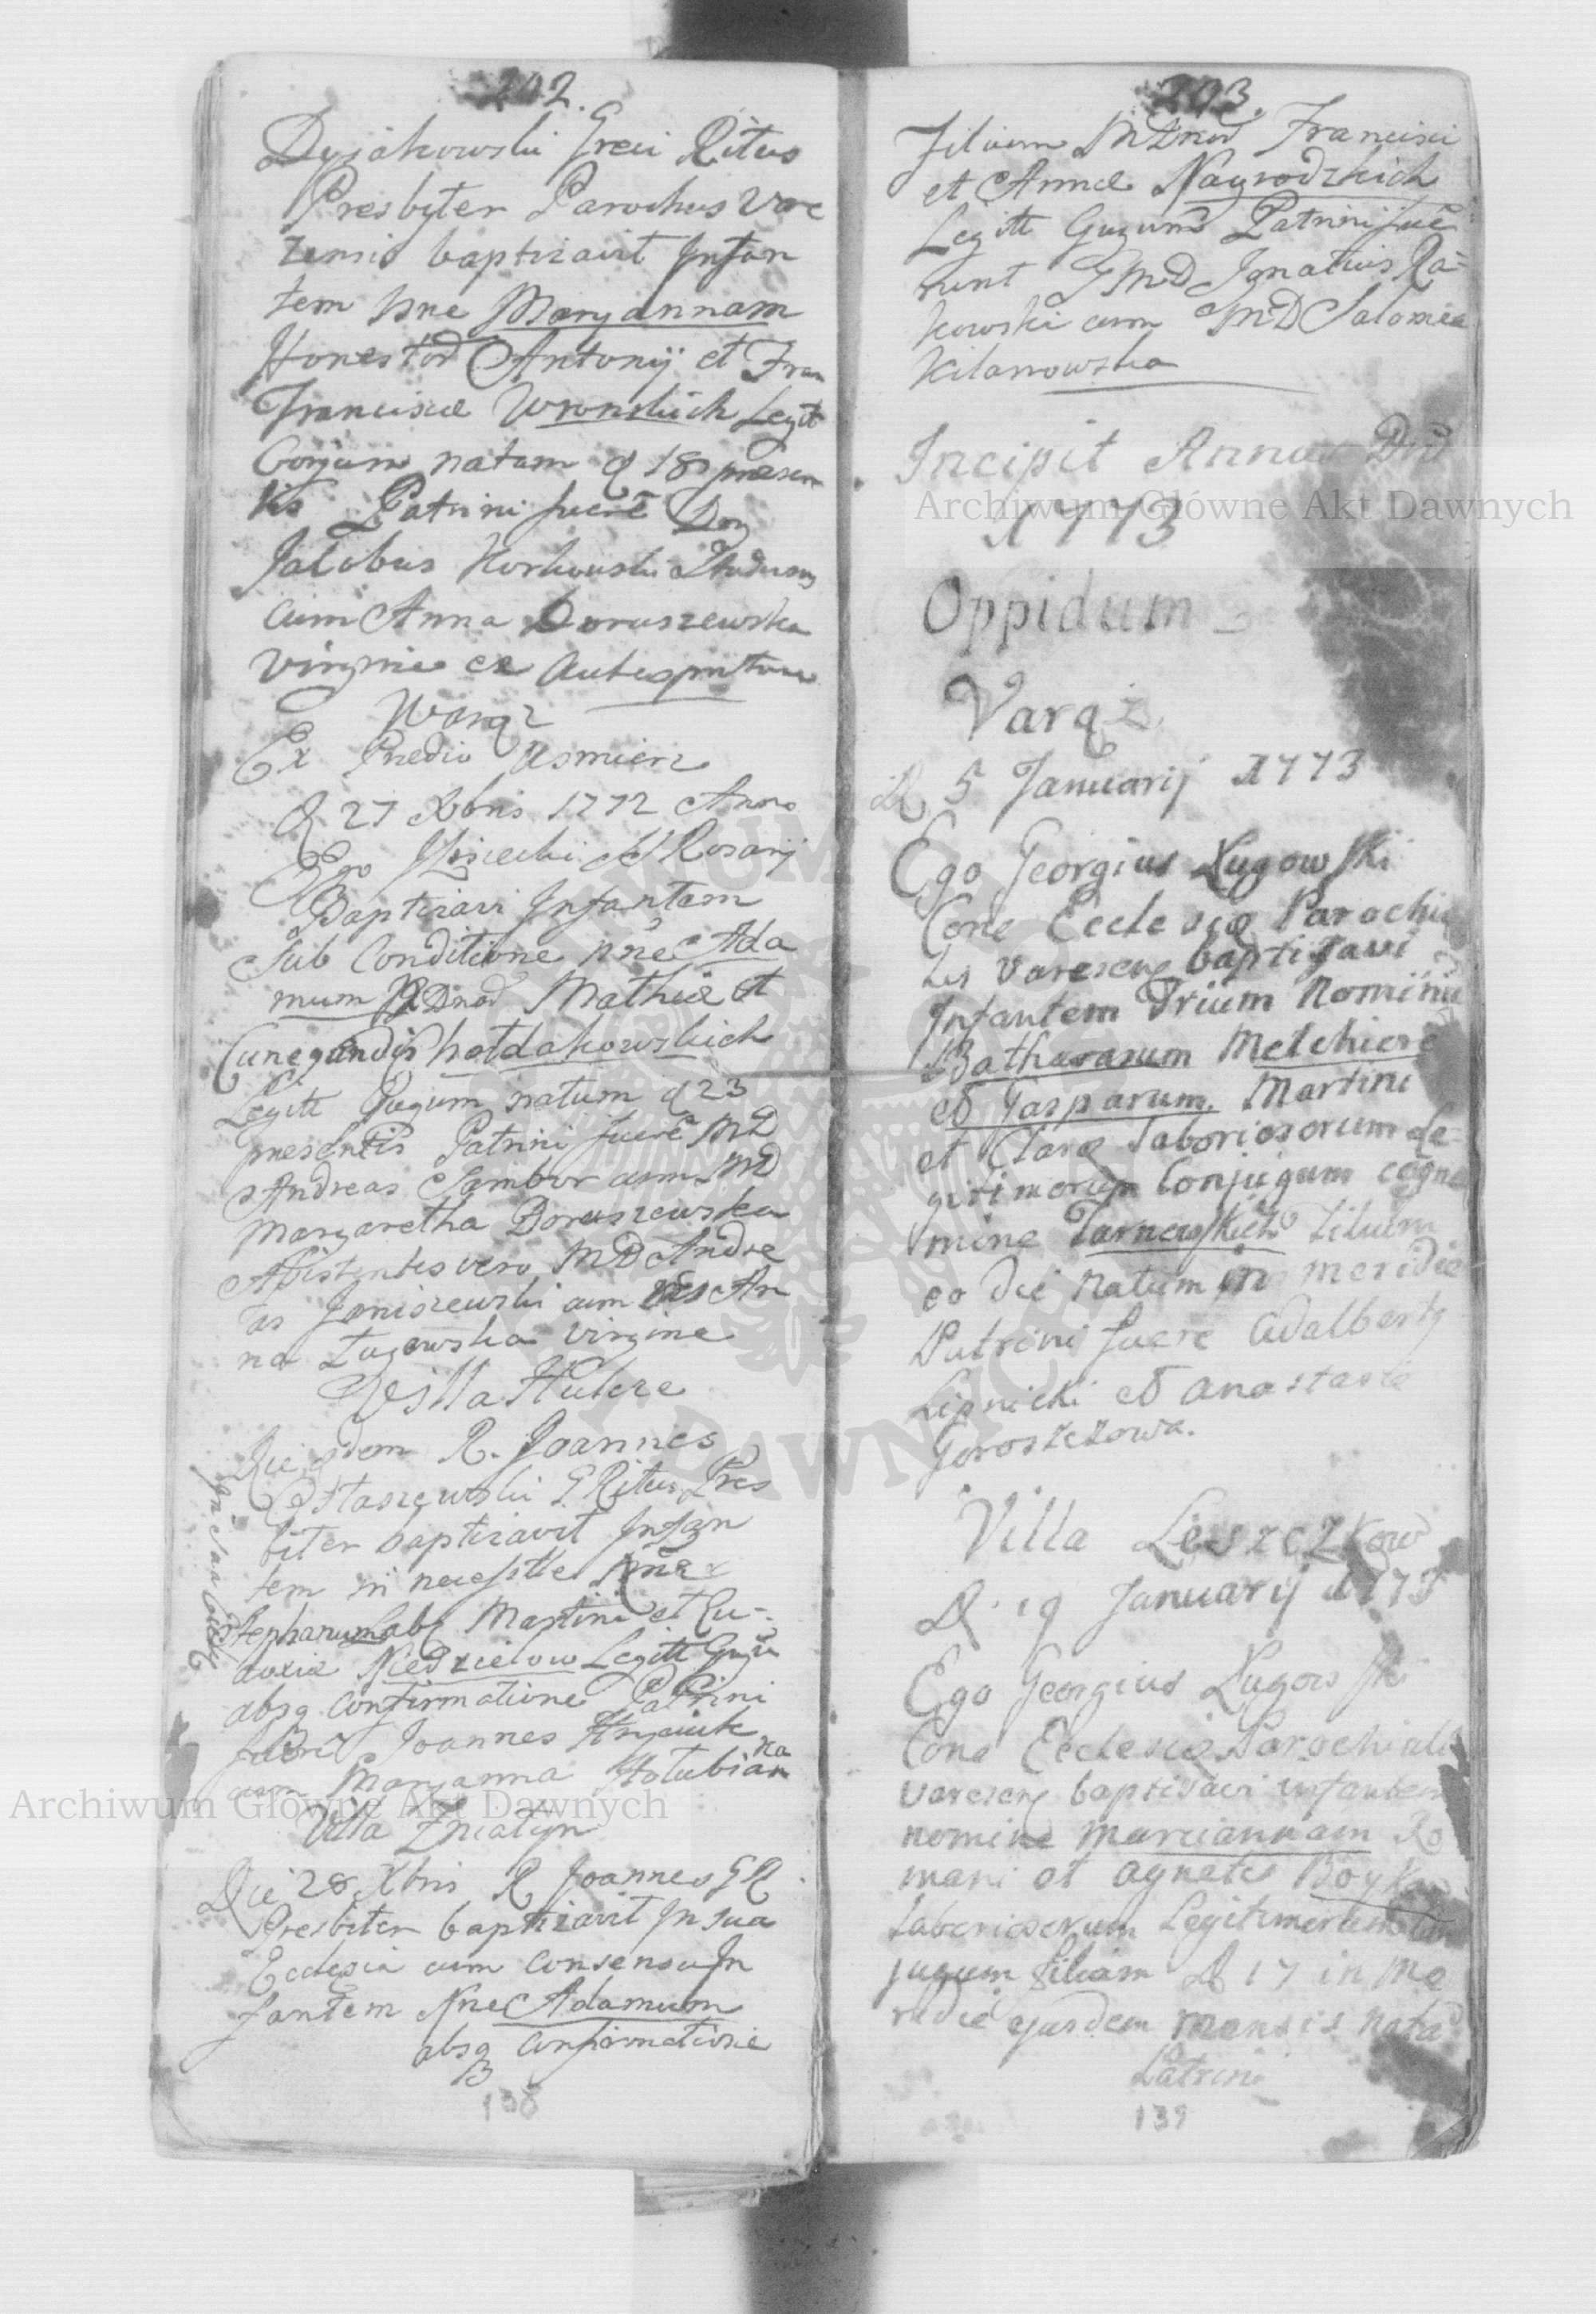 202.
Dyjakowski Greci Ritus
Presbyter Parochus Vare
zensis baptizavit Infan
tem nne Maryannam
Honestor Antonij et Fran
Francisce Wronskich Legit
Conjum natam d 18 praesen
tis Patrini fuere Don
Jacobus Korkowski
cum Anna Doruszewska
Virgine ex
Waręz
Ex Predio Usmierz
d 27 Xbris 1772 Anno
Ego S Rosarij
Baptizavi Infantem
Sub Conditione nne Ada
mum MDnor Mathie et
Cunegundis hotdakowskich
Legitt Jugum natum d 23
presentis Patrini fuere MD
Andreas Sambor cum MD
Margaretha Doruszewska
Assistentes vero MD Andre
as Janiszewski cum An
na Lugowska Virgine
Villa Hulcze
Die eodem R. Joannes
Lestaszewski G Ritus Pres
biter baptizavit Infan
tem in necessitte nne
Stephanum Lab Martini et Eu-
doxie Niedzielow Legitt Gugu
absq confirmatione Patrini
fuere Joannes
cum Maryanna Hotubian
ka
Villa Zniatyn
Die 28 Xbris R Joannes GR
Presbiter baptizavit In sua
Ecclesia cum consensu In
fantem Nne Adamum
absq confirmatione
138
203.
Filium MDnor Francisci
et Anne Nayrodzkich
Legitt Gugum Patrini fue
runt GMD Ignatius Ra=
kowski cum MD Salomea
Kilanowska
Incipit Annus Dni
1773
Oppidum
Varęz
D 5 Januarij 1773
Ego Georgius Lugowski
Cone Ecclesiae Parochia
lis Varezens baptisavi
Infantem Trium Nominu
Bathasarum Melchiore
et Gasparum. Martini
et Clarae Laboriosorum Le-
gitimorum Conjugum cogno
mine Tarnowskich filium
eo die natum in meridie
Patrini fuere Adalbertg
Lipnicki et Anastasia
Goroszczowa.
Villa Leszczkow
D. 19 Januarij 1773
Ego Georgius Lugowski
Cone Ecclesiae Parochialis
varezens baptisavi infantem
nomine Marciannam Ro
mani et Agnetis Boyko
Laboriosorum Legitimorum Con
jugum filiam D 17 in me
ridie ejusdem mensis nata
Patrini
139
Archiwum Główne Akt Dawnych
Archiwum Główne Akt Dawnych